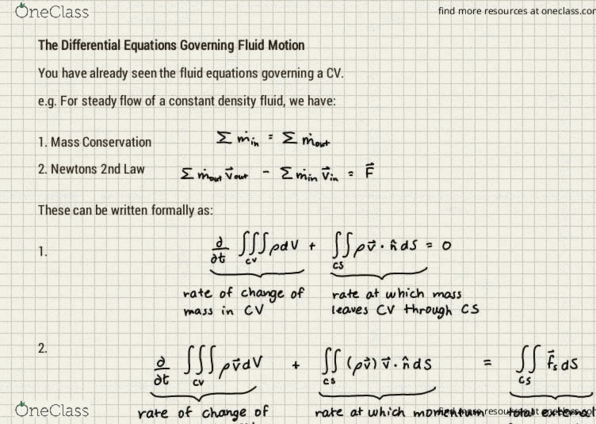 OneClass
find more resources at oneclass.com
The Differential Equations Governing Fluid Motion
You have already seen the fluid equations governing a CV.
e.g. For steady flow of a constant density fluid, we have:
1. Mass Conservation Σ ṁ_in = Σ ṁ_out
2. Newtons 2nd Law Σ ṁ_out v⃗_out - Σ ṁ_in v⃗_in = F⃗
These can be written formally as:
1. ∂/∂t ∭_CV ρdV + ∬_CS ρv⃗ · n̂ dS = 0
rate of change of rate at which mass
mass in CV leaves CV through CS
2. ∂/∂t ∭_CV ρv⃗dV + ∬_CS (ρv⃗) v⃗ · n̂ dS = ∬_CS f⃗_s dS
rate of change of rate at which momentum total external
OneClass